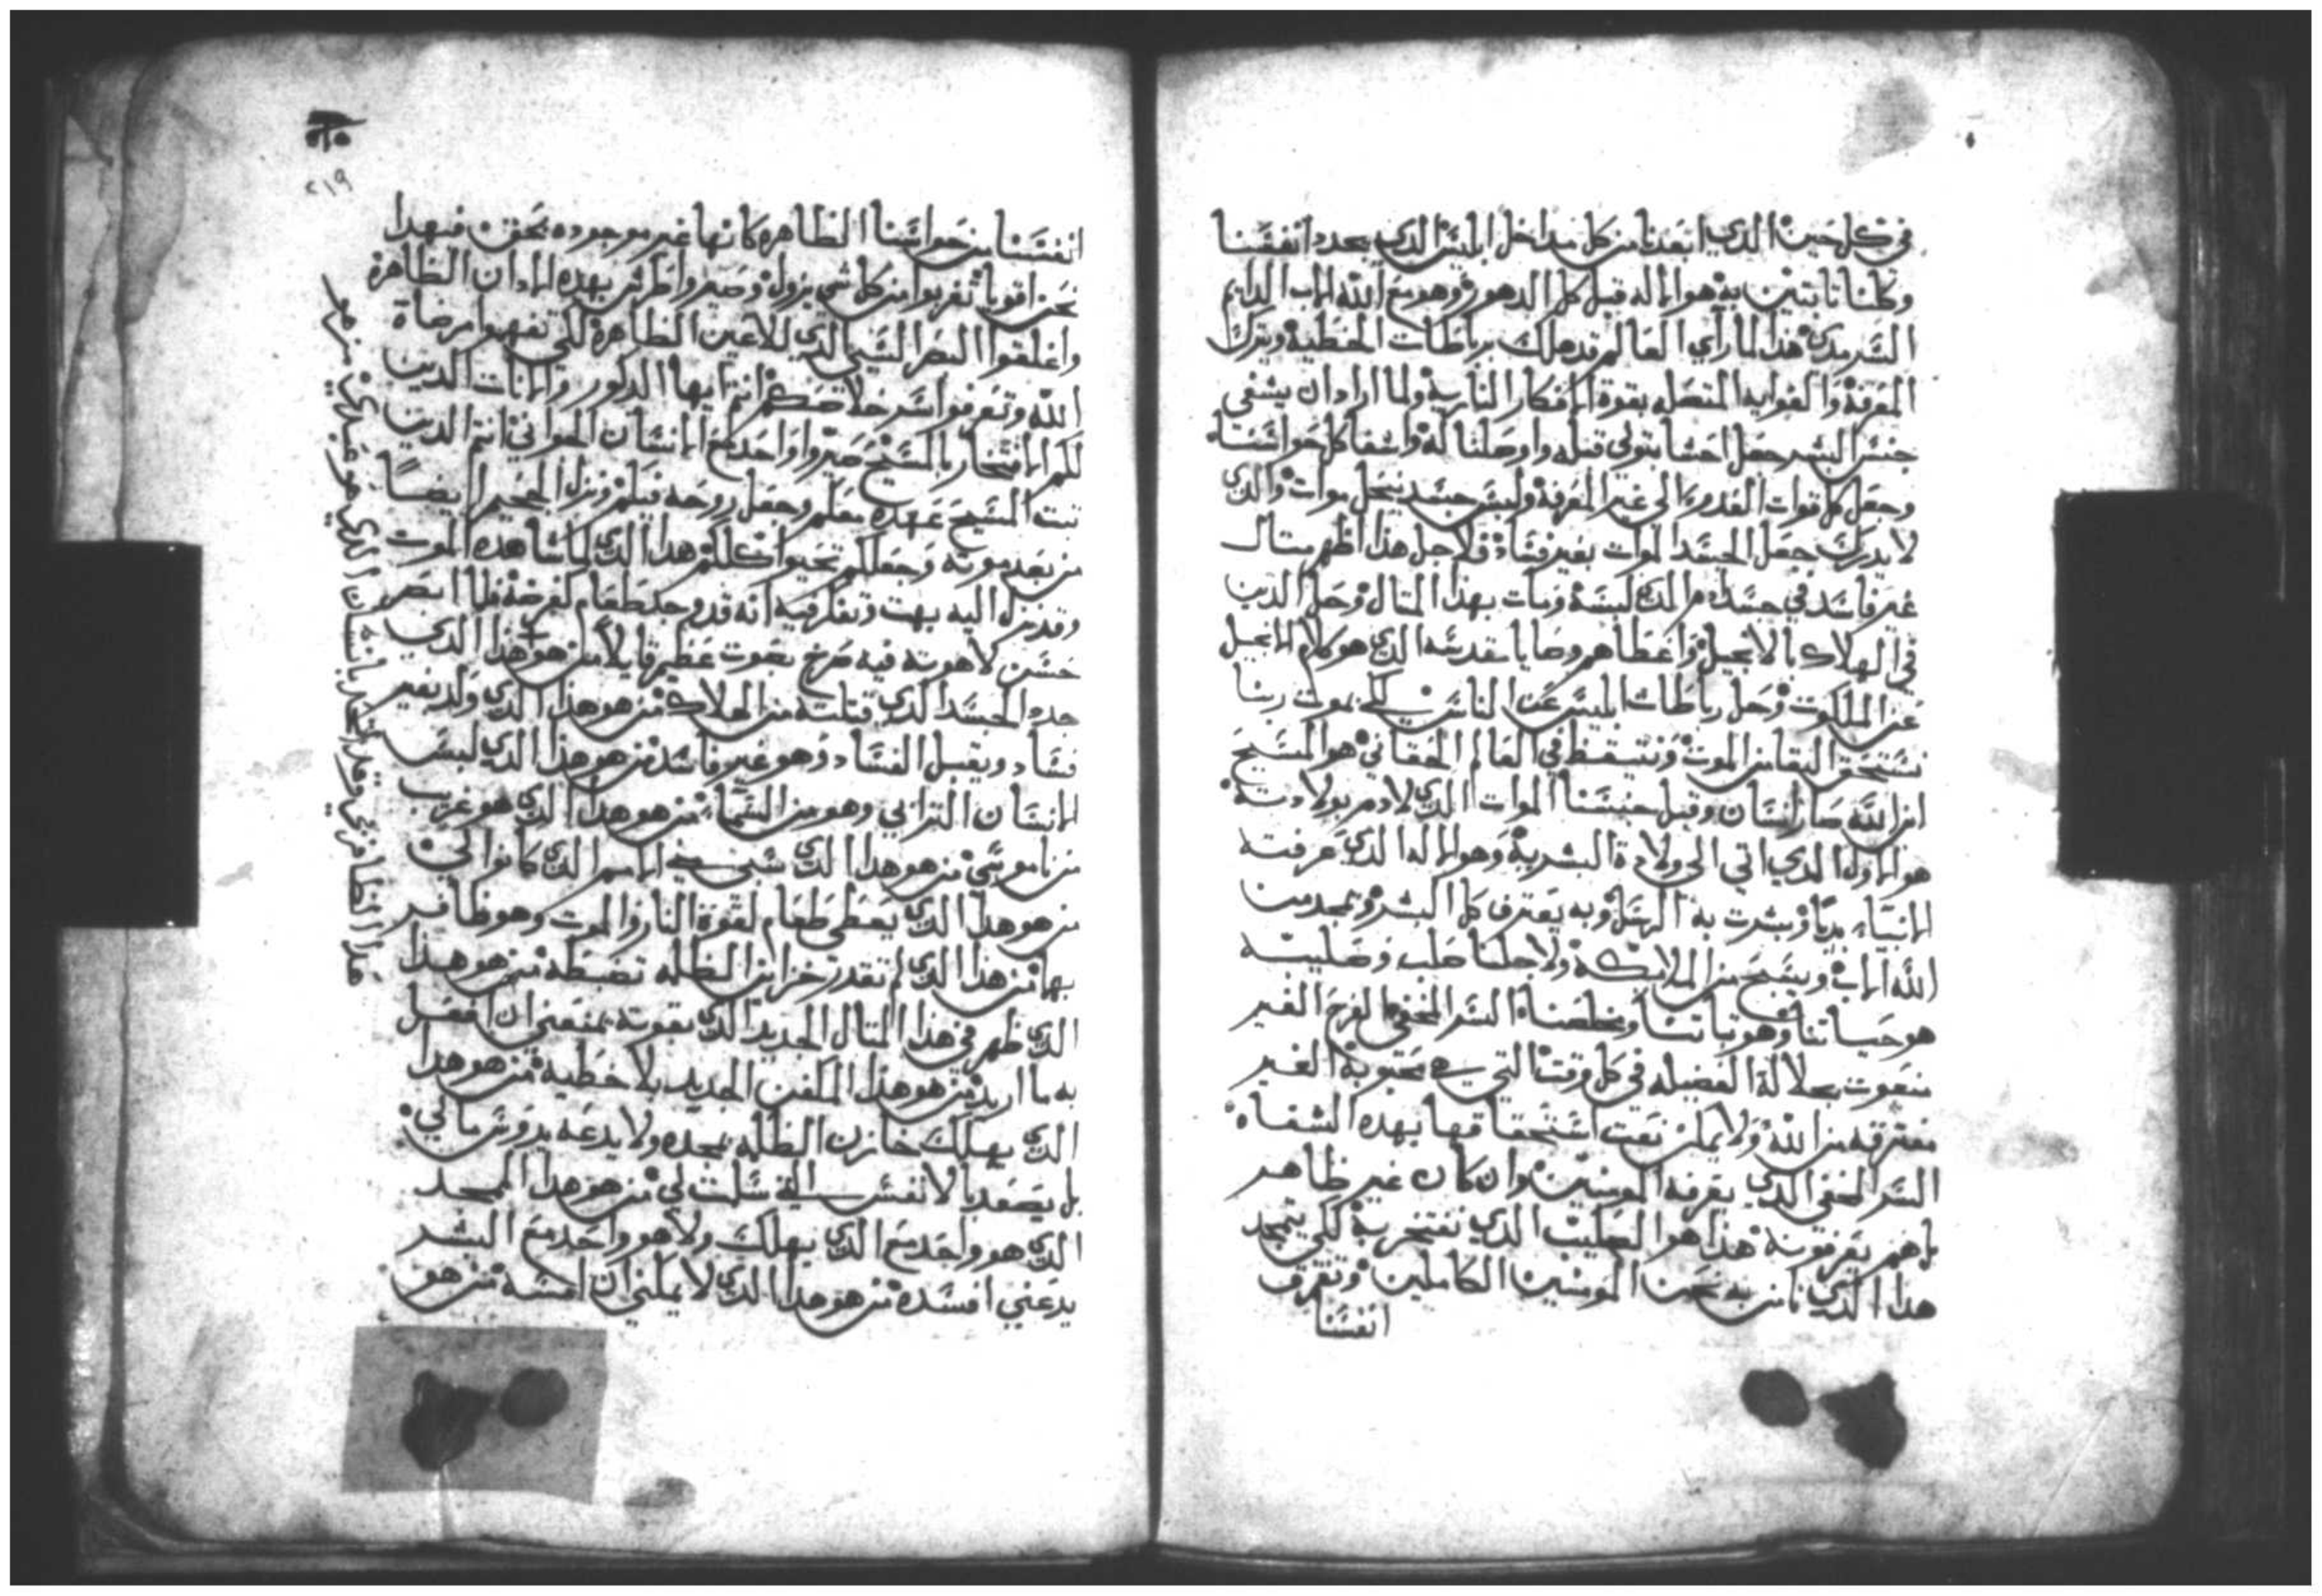 في كل حين الذي ابعدنا من كل مداخل ابليس الذي يجدد انفسنا
وكلنا تابتين به هو الاله قبل كل الدهور وهو مع الله الاب الدايم
السرمدي هذا لما راي العالم قد هلك برباطات الخطية وترك
المعرفة والغوايه المتصله بقوة الافكار النارية ولما اراد ان يشفي
جنس البشر جعل احشا بتولي قبله واوصلنا له واشفا كل حواسنا
وجعل كل قوات العدو الي غير المعرفة ولبس جسد يقبل موات والذي
لا يدرك جعل الجسد الموات بغير فساد فلاجل هذا اظهر متال
غير فاسد في جسد ادم الذي لبسه ومات بهذا المتال وحل الذين
في الهلاك بالانجيل واعطاهم وصايا مقدسه الذي هو كلام الانجيل
عن الملكوت وحل رباطات ابليس عن الناس لكي بموت ربنا
نستحق البقا من الموت ونتيقظ في العالم الحقاني هو المسيح
ابن الله صار انسان وقبل جنسنا الموات الذي لادم بولادته
هو الاول الذي اتي الي ولادة البشرية وهو الاله الذي عرفته
الانبياء بديا وبشرت به الرسل وبه يعترف كل البشر وتمجد من
الله الاب ويسبح من الملايكة ولاجلنا صلب وصليبه
هو حياتنا وهو تباتنا وخلصنا السر المخفي الفرح الغير
منعوت بجلالة الفضيله في كل وقت التي هي محبوبة الغير
مفترقه من الله ولا يمكن نعت استحقاقها بهده الشفاه
السر المخفي الذي يعرفه المومنين وان كان غير ظاهر
بل هم يعرفونه هذا هو الصليب الذي نفتخر به لكي يتمجد
هدا الذي نامن به نحن المومنين الكاملين ونعرف
انفسنا
٢١٩
انفسنا من حواسنا الظاهره كانها غير موجوده بحق فبهدا
نحن اقويا تغربوا من كل شي يزول وصيروا طرش بهده الادان الظاهرة
واغلقوا البصر السيي الذي للاعين الظاهرة لكي تفهموا مرضاة
الله وتعرفوا سر خلاصكم انتم ايها الدكور والانات الدين
لكم الافتخار بالمسيح صيروا واحد مع الانسان الجواني انتم الدين
تبت المسيح عهده معكم وجعل روحه فيكم ونزل الجحيم ايضاً
من بعد موته وجعلكم تحيوا كلكم هدا الذي لما شاهده الموت
وقد نزل اليه بهت وتفكر فيه انه قد وجد طعام كغرضه فلما ابصر
حسن لاهوته فيه صرخ بصوت عظيم قايلاً من هو هذا الذي
جدد الجسد الذي قتلته من الهلاك من هو هذا الذي ولد بغير
فساد ويقبل الفساد وهو غير فاسد من هو هدا الذي لبس
الانسان الترابي وهو من السماء من هو هدا الذي هو غريب
من ناموسي من هو هدا الذي سبي الاسرا الذي كانوا لي
من هو هدا الذي يعطي طعام لقوة النار والموت وهو ظافر
بها من هذا الذي لم تقدر خزاين الظلمه تضبطه من هو هدا
الذي ظهر في هذا المتال الجديد الذي بقوته يمنعني ان افعل
به ما اريد من هو هذا المكفن الجديد بلا خطية من هو هدا
الذي يهلك خازن الظلمه بمجده ولا يدعه يدوس مالي
بل يصعد بالانفس التي سلمت لي من هو هدا الممجد
الذي هو واحد مع الذي يهلك ولا هو واحد مع البشر
يدعني افسده من هو هدا الذي لا يمكنني ان امسه من هو